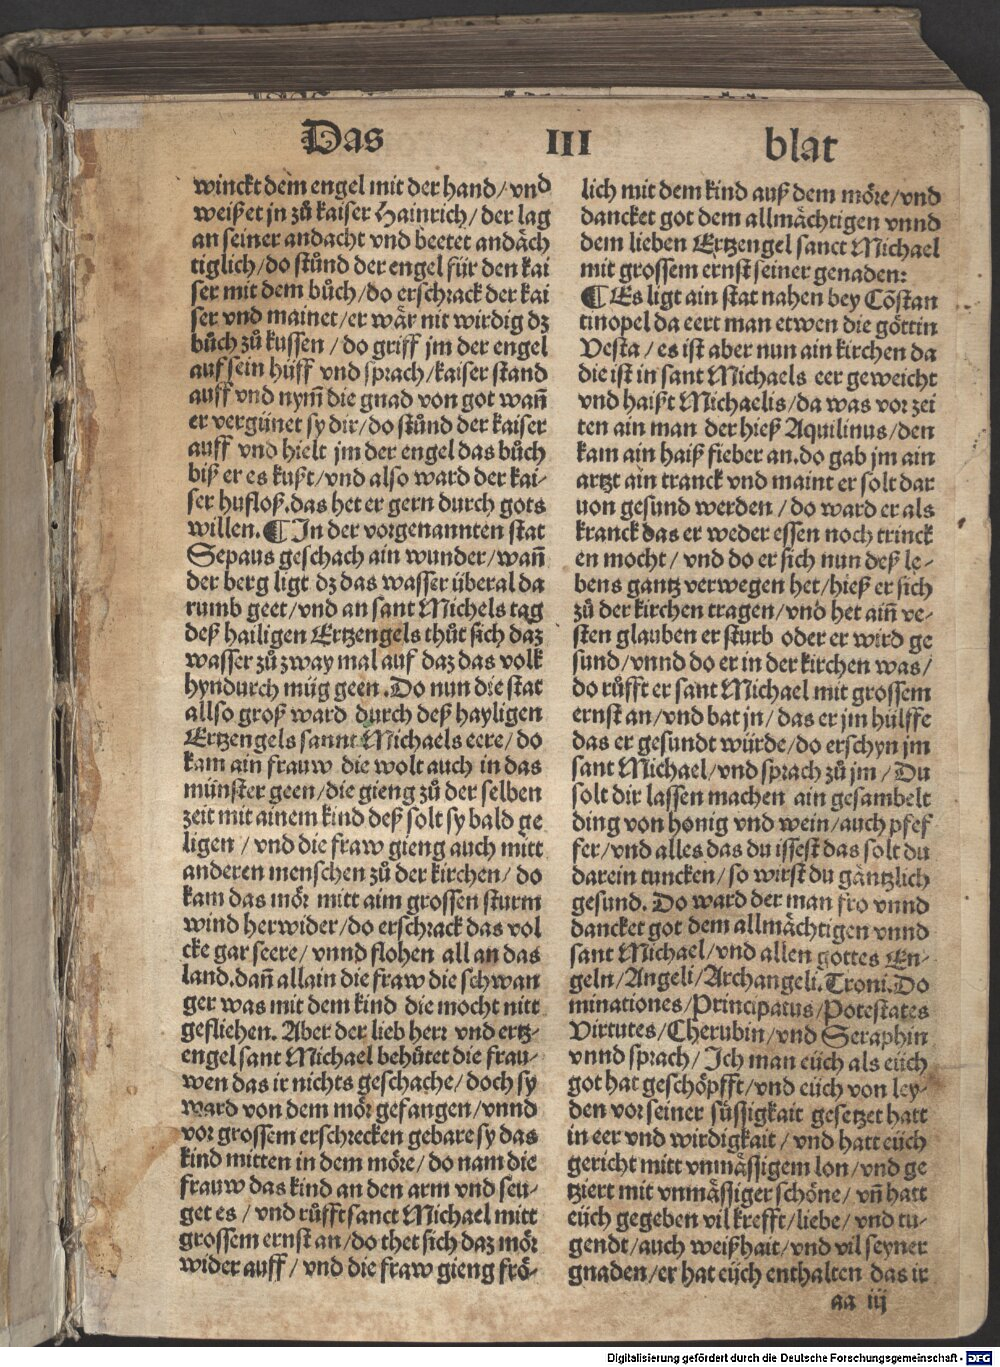 Das III blat
winckt dem engel mit der hand/vnd
weißet jn zů kaiser Hainrich/der lag
an seiner andacht vnd beetet andäch
tiglich/do stůnd der engel für den kai
ser mit dem bůch/do erschrack der kai
ser vnd mainet/er wär nit wirdig dz
bůch zů kussen/do griff jm der engel
auf sein hüff vnd sprach/kaiser stand
auff vnd nym̃ die gnad von got wañ
er vergünet sy dir/do stůnd der kaiser
auff vnd hielt jm der engel das bůch
biß er es kußt/vnd also ward der kai-
ser hufloß.das het er gern durch gots
willen.¶In der vorgenannten stat
Sepaus geschach ain wunder/wañ
der berg ligt dz das wasser überal da
rumb geet/vnd an sant Michels tag
deß hailigen Ertzengels thůt sich daz
wasser zů zway mal auf daz das volk
hyndurch müg geen.Do nun die stat
allso groß ward durch deß hayligen
Ertzengels sannt Michaels eere/do
kam ain frauw die wolt auch in das
münster geen/die gieng zů der selben
zeit mit ainem kind deß solt sy bald ge
ligen/vnd die fraw gieng auch mitt
anderen menschen zů der kirchen/do
kam das mör mitt aim grossen sturm
wind herwider/do erschrack das vol
cke gar seere/vnnd flohen all an das
land.dañ allain die fraw die schwan
ger was mit dem kind die mocht nitt
gefliehen. Aber der lieb herr vnd ertz-
engel sant Michael behůtet die frau-
wen das ir nichts geschache/doch sy
ward von dem mör gefangen/vnnd
vor grossem erschrecken gebare sy das
kind mitten in dem möre/do nam die
frauw das kind an den arm vnd seu-
get es/vnd růfft sanct Michael mitt
grossem ernst an/do thet sich daz mör
wider auff/vnd die fraw gieng frö-
lich mit dem kind auß dem möre/vnd
dancket got dem allmächtigen vnnd
dem lieben Ertzengel sanct Michael
mit grossem ernst seiner genaden:
¶Es ligt ain stat nahen bey Cõstan
tinopel da eert man etwen die göttin
Vesta/es ist aber nun ain kirchen da
die ist in sant Michaels eer geweicht
vnd haißt Michaelis/da was vor zei
ten ain man der hieß Aquilinus/den
kam ain haiß fieber an.do gab jm ain
artzt ain tranck vnd maint er solt dar
uon gesund werden/do ward er als
kranck das er weder essen noch trinck
en mocht/vnd do er sich nun deß le-
bens gantz verwegen het/hieß er sich
zů der kirchen tragen/vnd het aiñ ve-
sten glauben er sturb oder er wird ge
sund/vnnd do er in der kirchen was/
do růfft er sant Michael mit grossem
ernst an/vnd bat jn/das er jm hülffe
das er gesundt würde/do erschyn jm
sant Michael/vnd sprach zů jm/Du
solt dir lassen machen ain gesambelt
ding von honig vnd wein/auch pfef
fer/vnd alles das du issest das solt du
darein tuncken/so wirst du gäntzlich
gesund. Do ward der man fro vnnd
dancket got dem allmächtigen vnnd
sant Michael/vnd allen gottes En-
geln/Angeli/Archangeli.Troni.Do
minationes/Principatus/Potestates
Virtutes/Cherubin/vnd Seraphin
vnnd sprach/Ich man eüch als eüch
got hat geschöpfft/vnd eüch von ley-
den vor seiner süssigkait gesetzet hatt
in eer vnd wirdigkait/vnd hatt eüch
gericht mitt vnmässigem lon/vnd ge
tziert mit vnmässiger schöne/vñ hatt
eüch gegeben vil krefft/liebe/vnd tu-
gendt/auch weißhait/vnd vil seyner
gnaden/er hat eüch enthalten das ir
aa iij
Digitalisierung gefördert durch die Deutsche Forschungsgemeinschaft - DFG